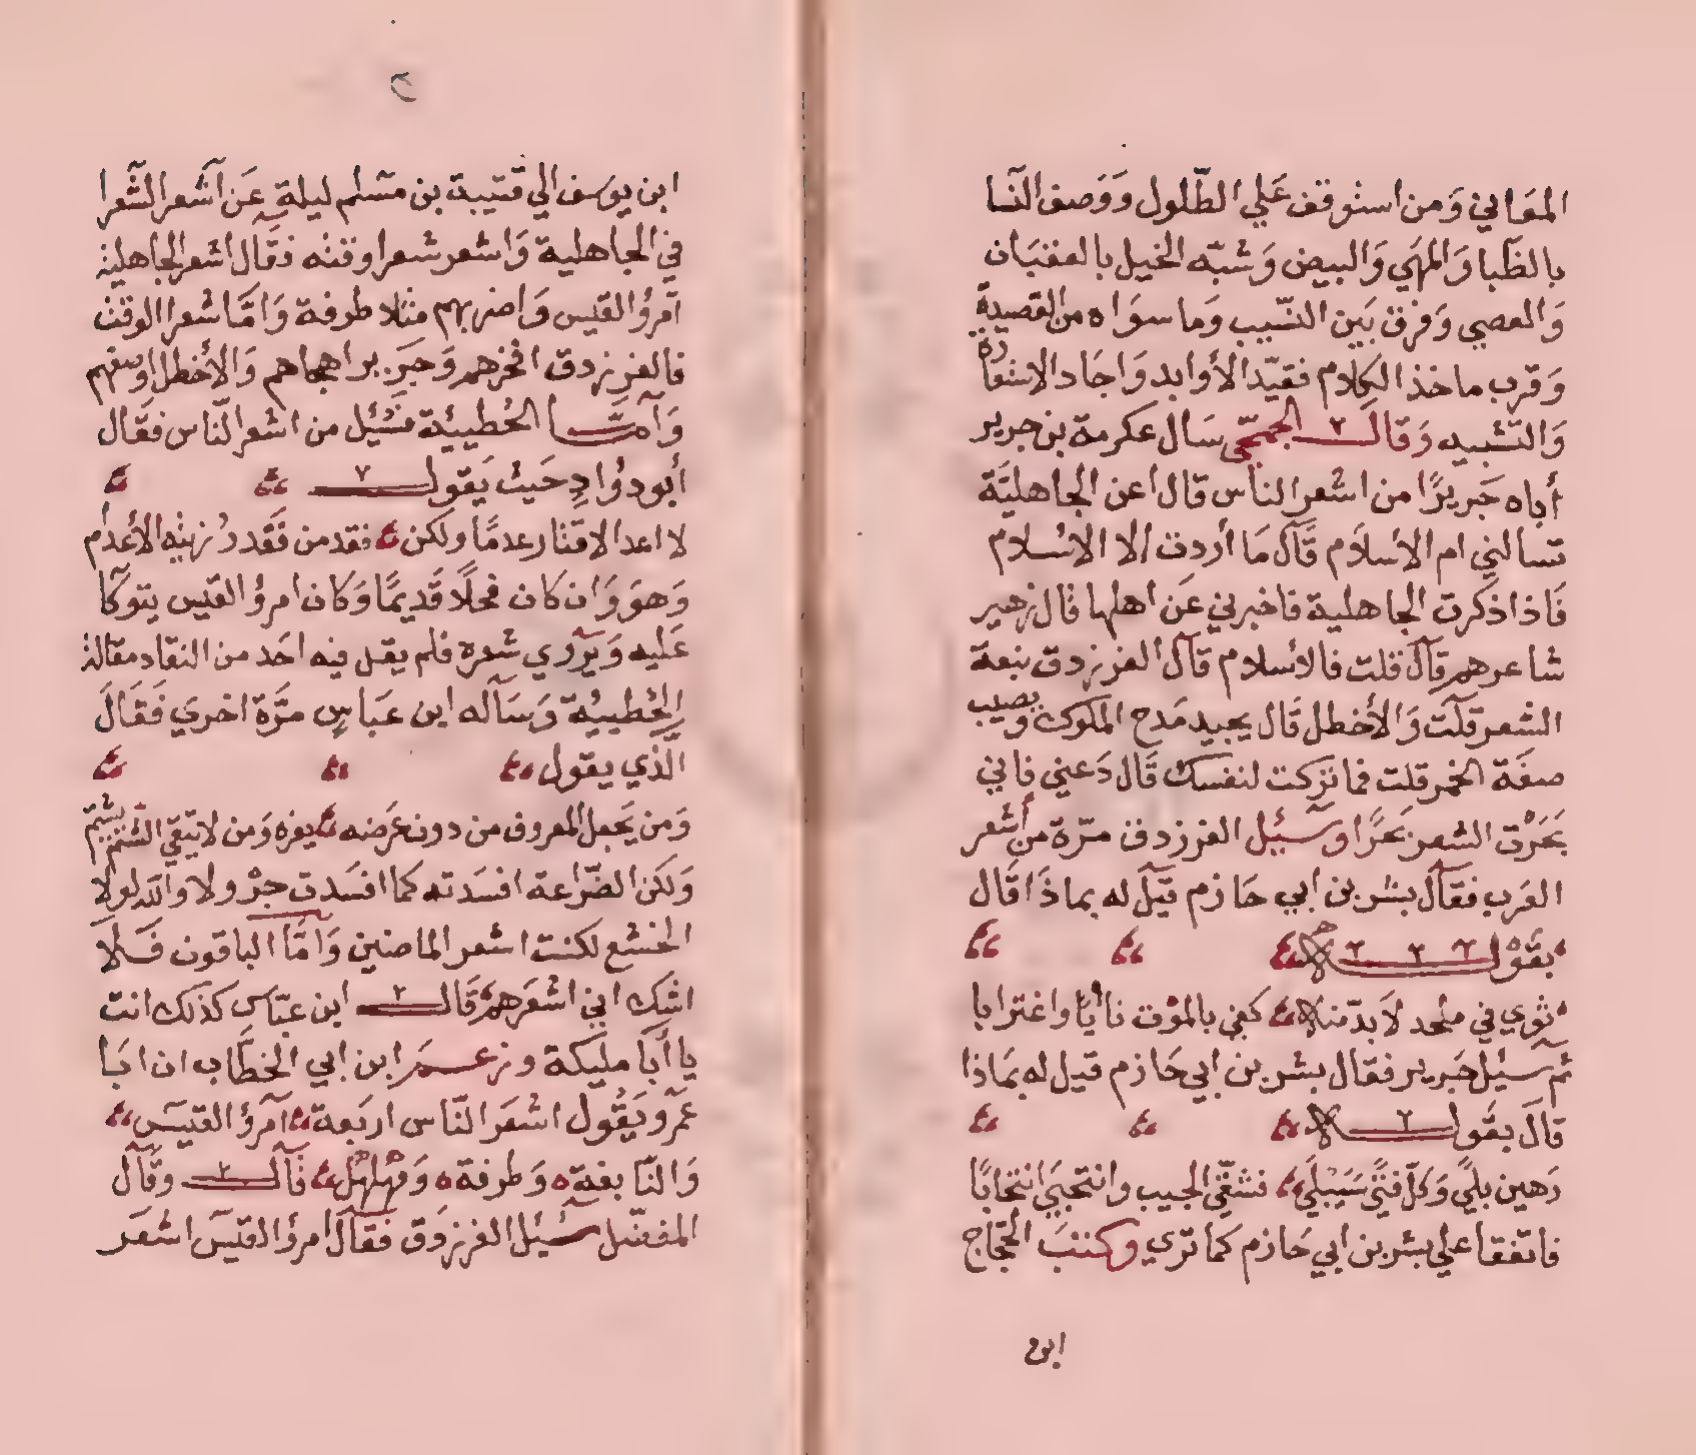 المعَاني وَمن استوقف عَلي الطّلول وَوَصف النّسا
بالظبا وَالمهَي وَالبيض وَشبّه الخيل بالعقبَان
وَالعصي وَفرق بَين النسّيب وَما سوَاه من القصيدة
وَقرب ماخذ الكلام فقيّد الأوابد وَاجَاد الاستعارة
وَالتشبيه وَقالَ الجمحّي سَال عكرمة بن جرير
أباه جَريرًا من اشعر الناس قال اعن الجاهليَّة
تسالني ام الاسلاَم قَال مَا أردت الا الاسلام
فَاذا ذكرت الجاهلية فاخبرني عَن اهلها قال زهير
شاعرهم قال قلت فالاسلام قال الفرزدق نبعة
الشعر قلت وَالأخطل قَال يجيد مَدح الملوك ويصيب
صفَة الخمر قلت فما تركت لنفسك قَال دَعني فاني
نحَرْت الشعر نحرًا وسَئيل الفرزدق مرّة من أشعر
العَرب فقال بشر بن ابي حَازم قيل له بماذَا قَال
بقَوْل
ثوي في ملحد لاَ بدّ منه كفي بالموْت نأيًا واغترابا
ثم سَئيل جَرير فقال بشر بن ابي حَازم قيل له بمَاذا
قالَ بقول
رَهين بليً وَكلّ فتيً سَيَبْليَ فشقّي الجيب وانتحبَي انتحابًا
فاتفقا علي بشر بن ابي حَازم كما تري وكتبَ الحجّاج
ابن
ابن يوسف الي قتيبة بن مسلم ليلة عَن اشعر الشّعرا
في الجاهلية وَاشعر شعرا وقته فقَال اشعر الجاهلية
امرؤ القيس وَاضربهم مثلا طرفة وَامّا شعرا الوقت
فالفرزدق افخرهم وَجَرير اهجاهم وَالأخطل اوصفهم
وَامّا الحُطيئة فسُئيل من اشعر النّاس فقَال
أبو دؤادِ حَيث يَقول
لا اعد الاقتار عدمًا ولكن فقد من قَقد رُزيته الأعدام
وَهوَ وَان كان فحلًا قَديمًا وَكان امرؤ القيس يتوكّا
عَليه وَيروي شعره فلم يقل فيه احَد من النقاد مقالة
الحُطيئة وَسَاله ابن عَباسٍ مرَّة اخري فَقَالَ
الّذي يقول
وَمن يَجعل المعروف من دون عرَضه يفره وَمن لا يتّقي الشّتم يشتم
وَلكن الضّراعة افسَدته كما افسَدت جرْولا والله لولا
الجشع لكنت اشعر الماضين وَامّا الباقون فَلاَ
اشك اني اشعَرهم قَال ابن عبّاس كذلك انت
يا أبَا مليكة وزعمَ ابن ابي الخطَّاب ان ابَا
عمّرو يَقُول اشعَر النّاس اربَعة امرؤ القيسَ
وَالنّابغة وَطرفة وَمُهلهْل قَال وقَال
المفضّل سُئيل الفرزدَق فقَال امرؤ القيسَ اشعَر